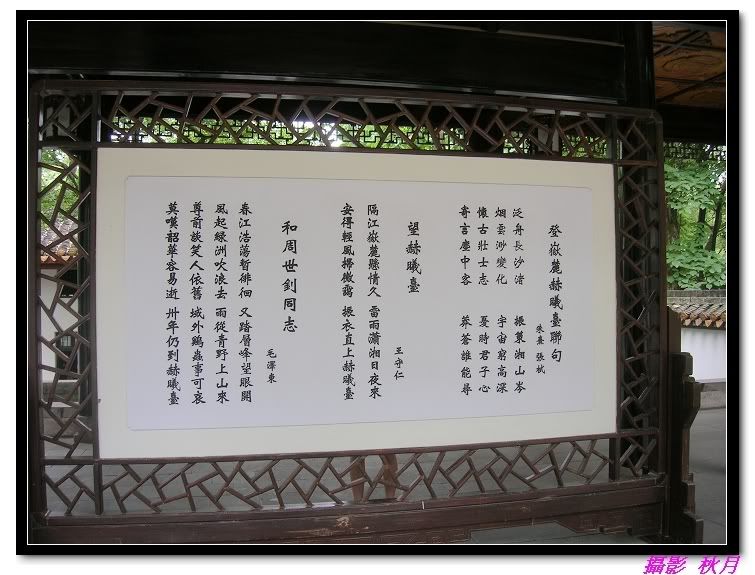 登嶽麓赫曦臺聯句
朱熹 張栻
泛舟長沙渚 振策湘山岑
烟雲渺變化 宇宙窮高深
懷古壯士志 憂時君子心
寄言塵中客 莽蒼誰能尋
望赫曦臺
王守仁
隔江嶽麓懸情久 雷雨瀟湘日夜來
安得輕風掃微靄 振衣直上赫曦臺
和周世釗同志
毛澤東
春江浩蕩暫徘徊 又踏層峰望眼開
風起綠洲吹浪去 雨從青野上山來
尊前談笑人依舊 域外鷄蟲事可哀
莫嘆韶華容易逝 卅年仍到赫曦臺
攝影 秋月